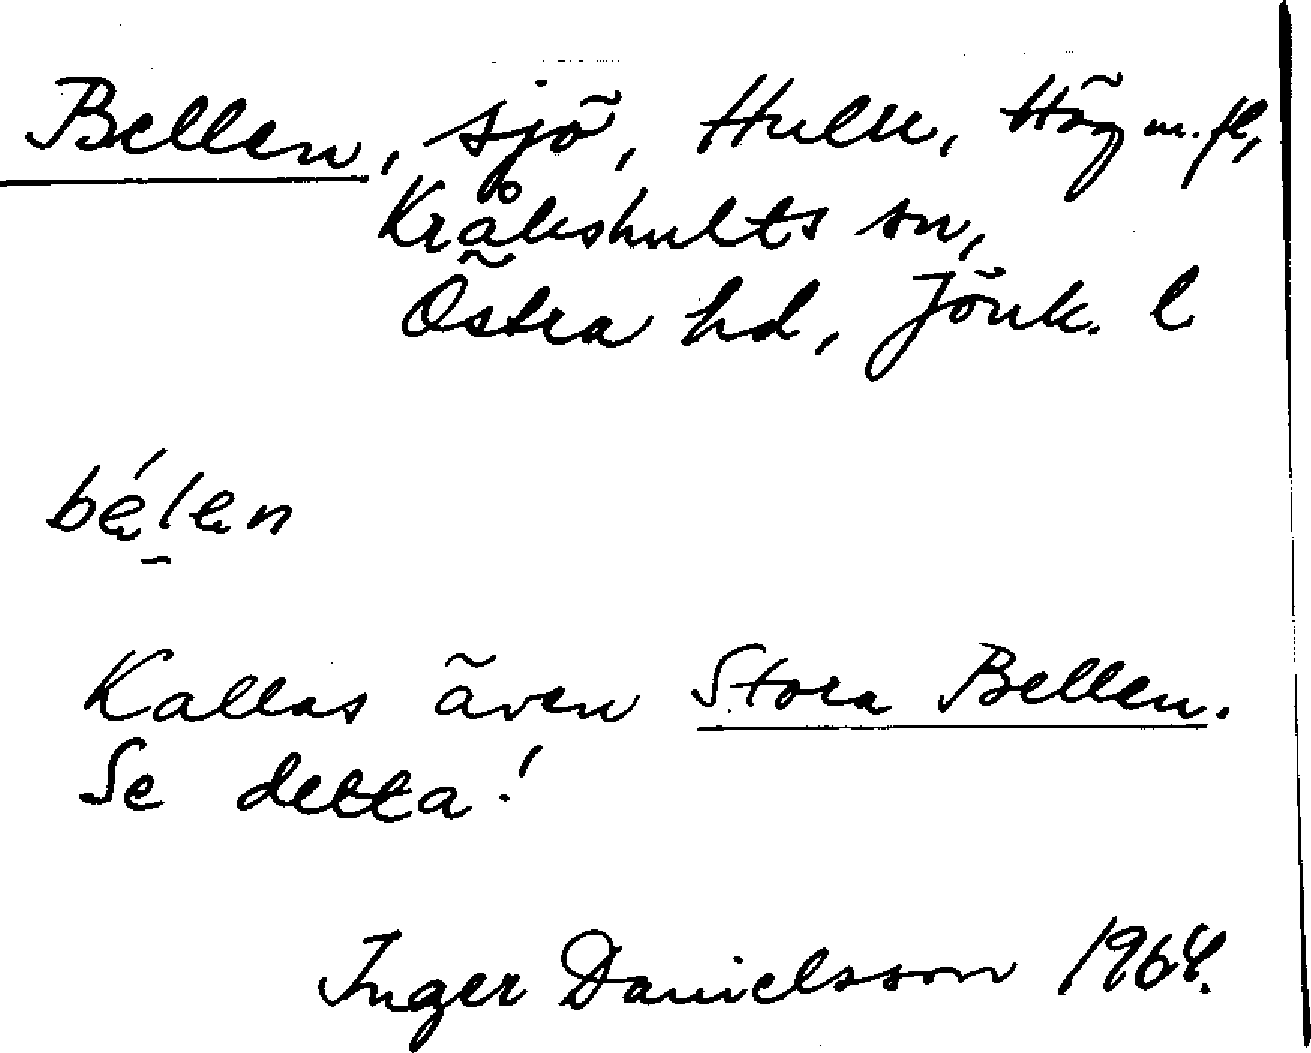 Bellen, sjö, Hulu, Hög m.fl,
Kråkshults sn,
Östra hd, Jönk. l
bélen
Kallas även Stora Bellen.
Se detta!
Inger Danielsson 1964.